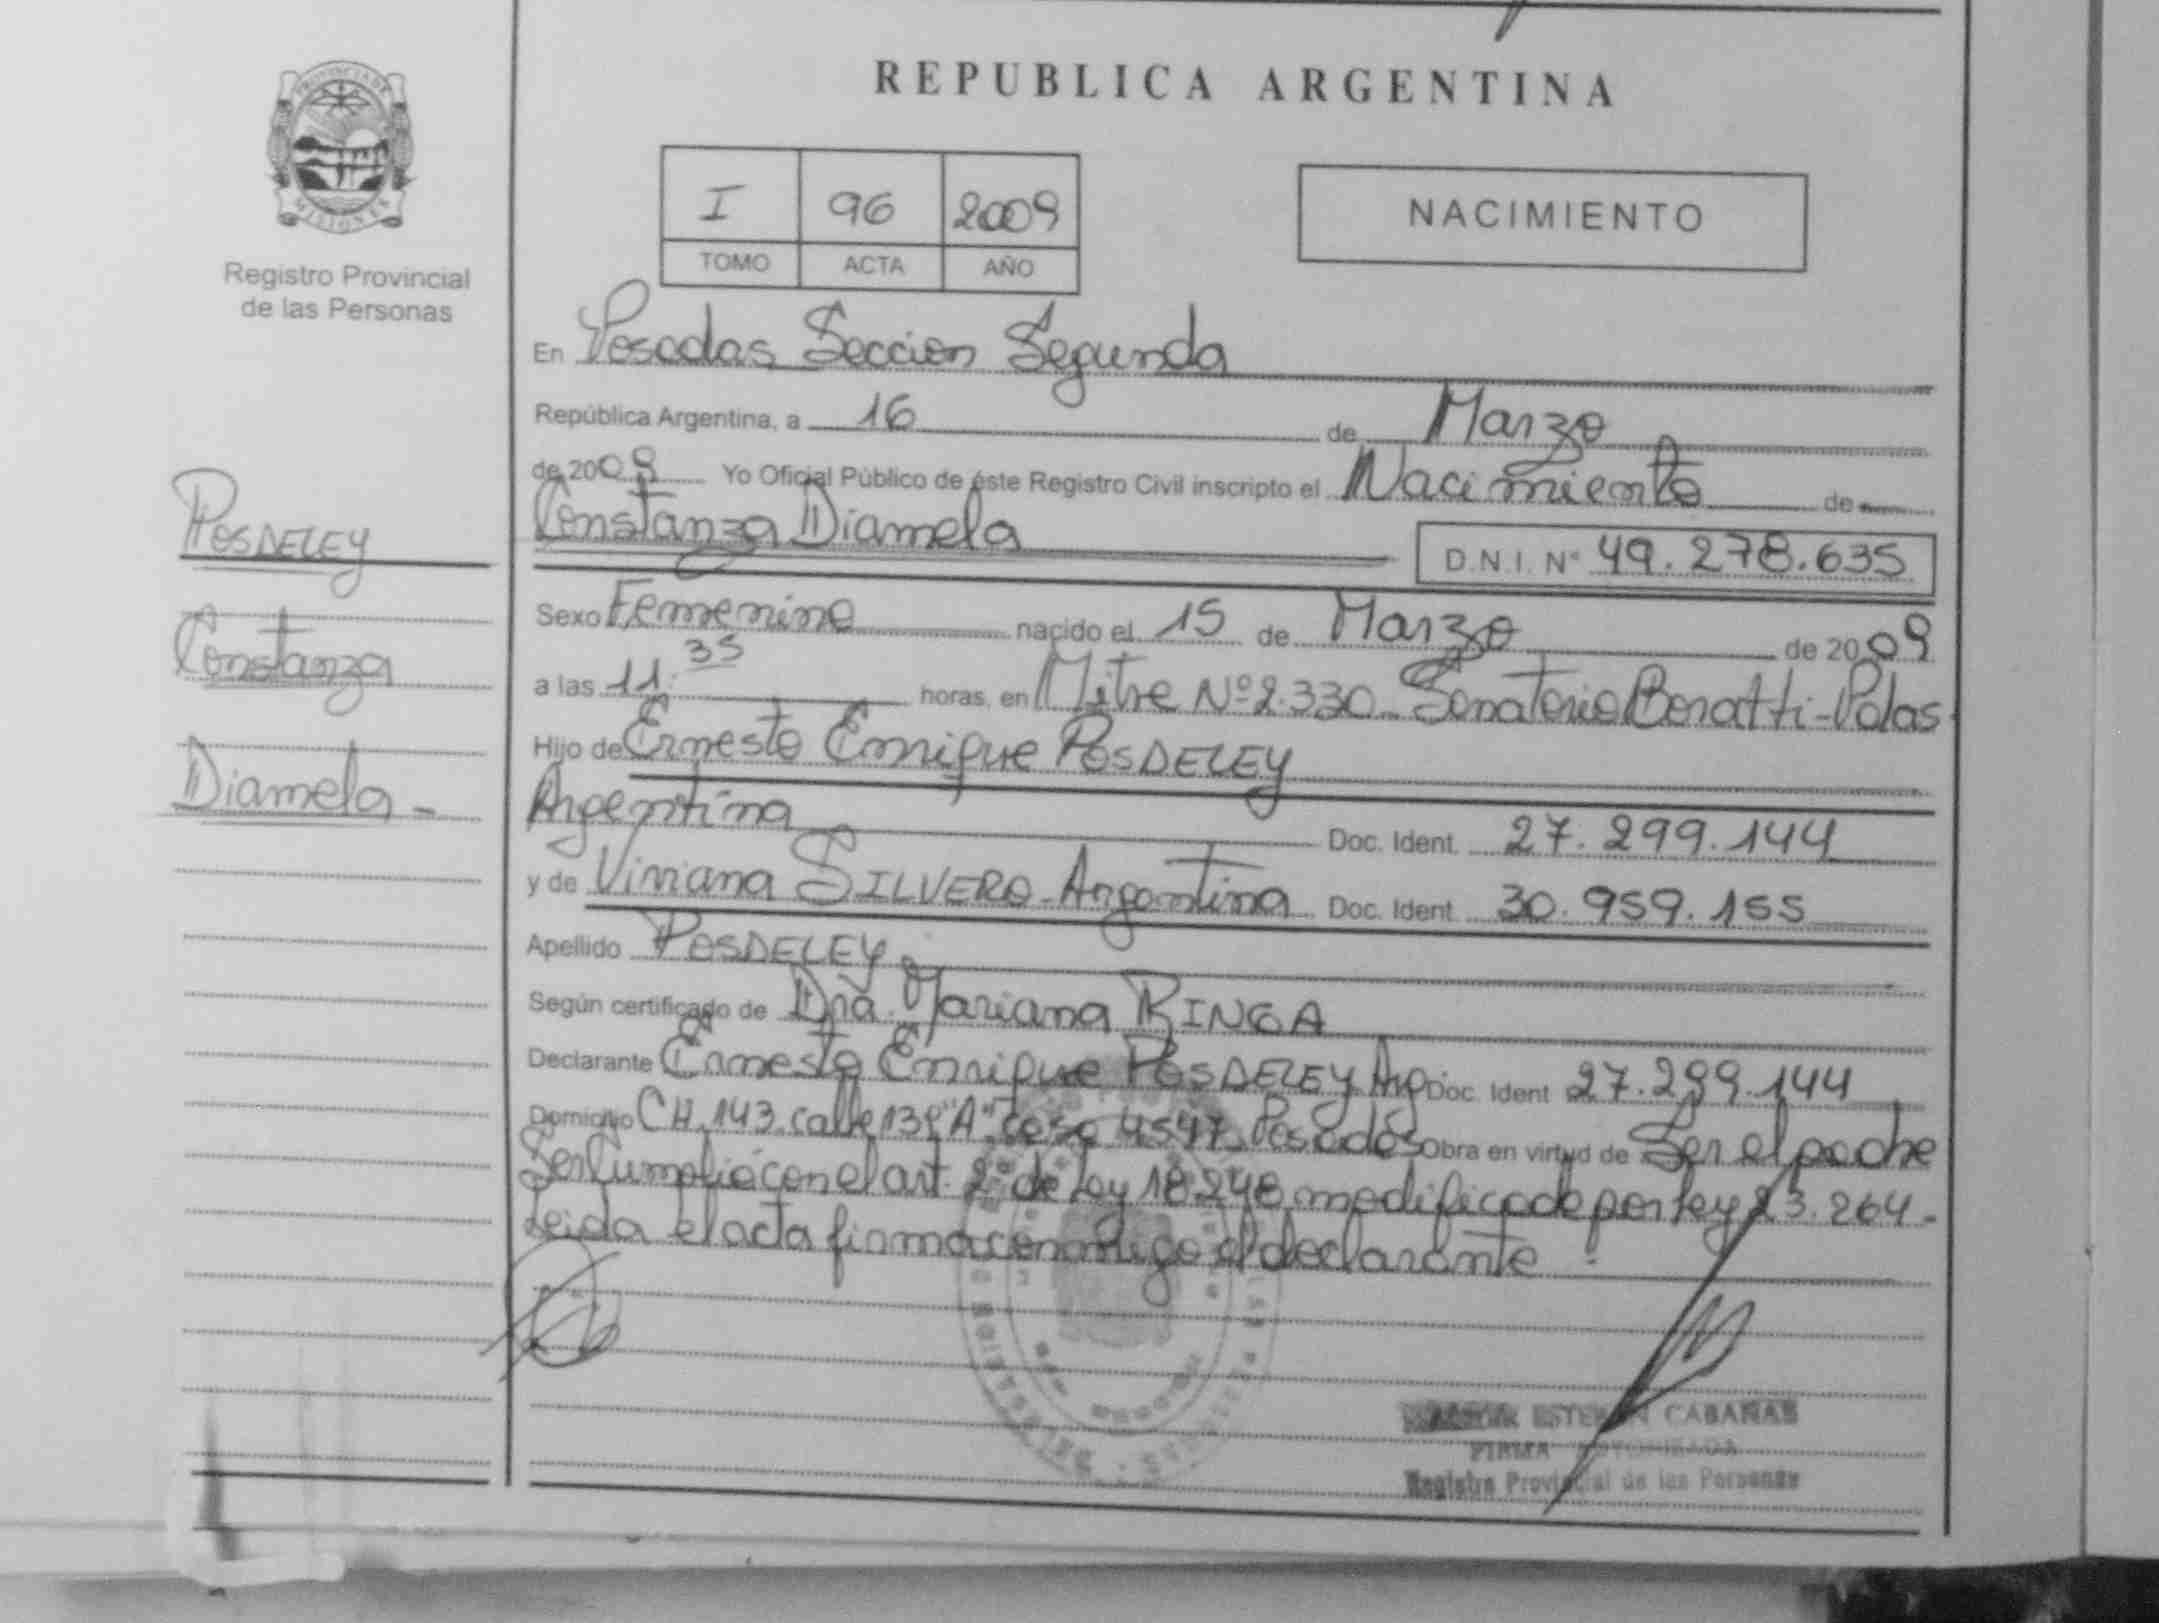 REPUBLICA ARGENTINA
PROVINCIA DE
MISIONES
Registro Provincial
de las Personas
I 96 2009
TOMO ACTA AÑO
NACIMIENTO
En Posadas Seccion Segunda
República Argentina, a 16 de Marzo
de 2009 Yo Oficial Público de éste Registro Civil inscripto el Nacimiento de
Constanza Diamela D.N.I. Nº 49.278.635
POSDELEY
Constanza
Diamela -
Sexo Femenino nacido el 15 de Marzo de 2009
a las 11:35 horas, en Mitre Nº 2.330 Sanatorio Boratti - Pdas
Hijo de Ernesto Enrique POSDELEY
Argentina Doc. Ident. 27.299.144
y de Viviana SILVERO - Argentina Doc. Ident. 30.959.155
Apellido POSDELEY
Según certificado de Dra. Mariana RINGA
Declarante Ernesto Enrique POSDELEY Arg Doc. Ident 27.299.144
Domicilio CH. 143 calle 139 "A" casa 4547 Posadas Obra en virtud de Ser el padre
Se cumplió con el art. 2º de Ley 18.248 modificada por ley 23.264 -
Leida el acta firma conmigo el declarante
ESTEBAN CABAÑAS
FIRMA AUTORIZADA
Registro Provincial de las Personas